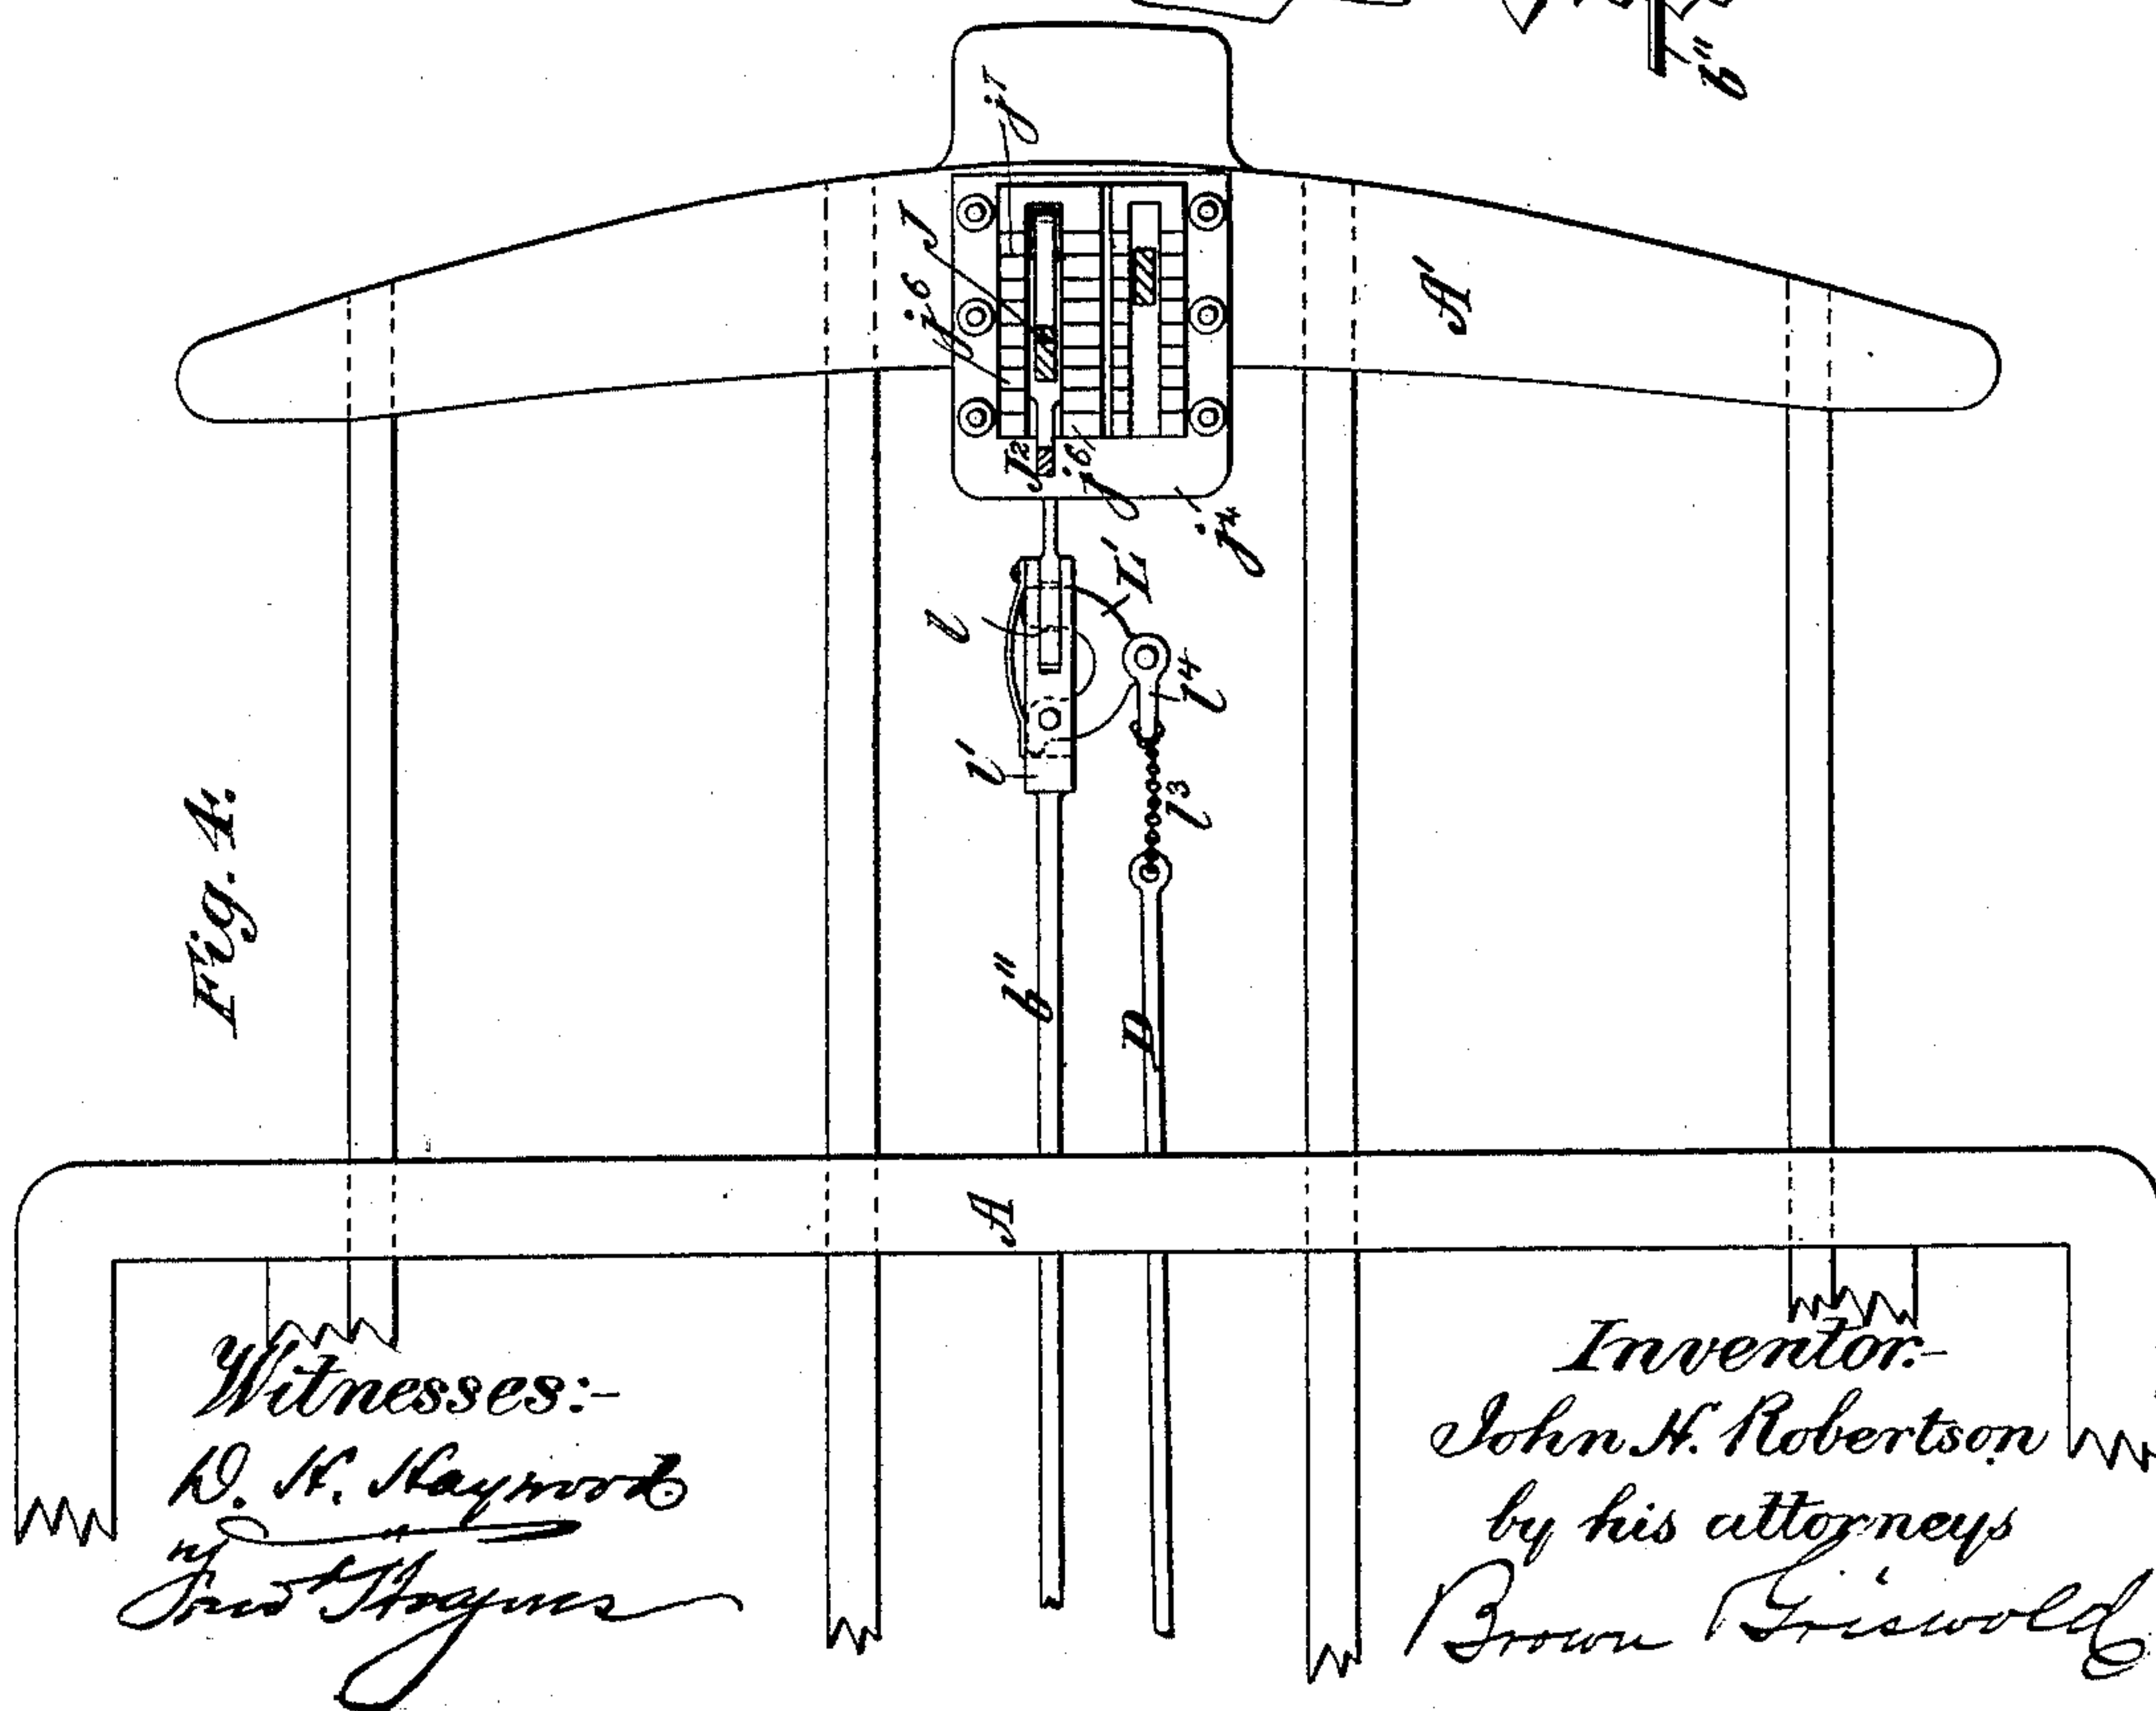 b"
j⁷
J
j⁶
A'
J²
j⁶
j⁴
L'
l
l⁴
l'
l³
Fig. 4.
b"
D
A
Witnesses:-
D. H. Haywood
Fred Haynes
Inventor:-
John H. Robertson
by his attorneys
Brown Griswold